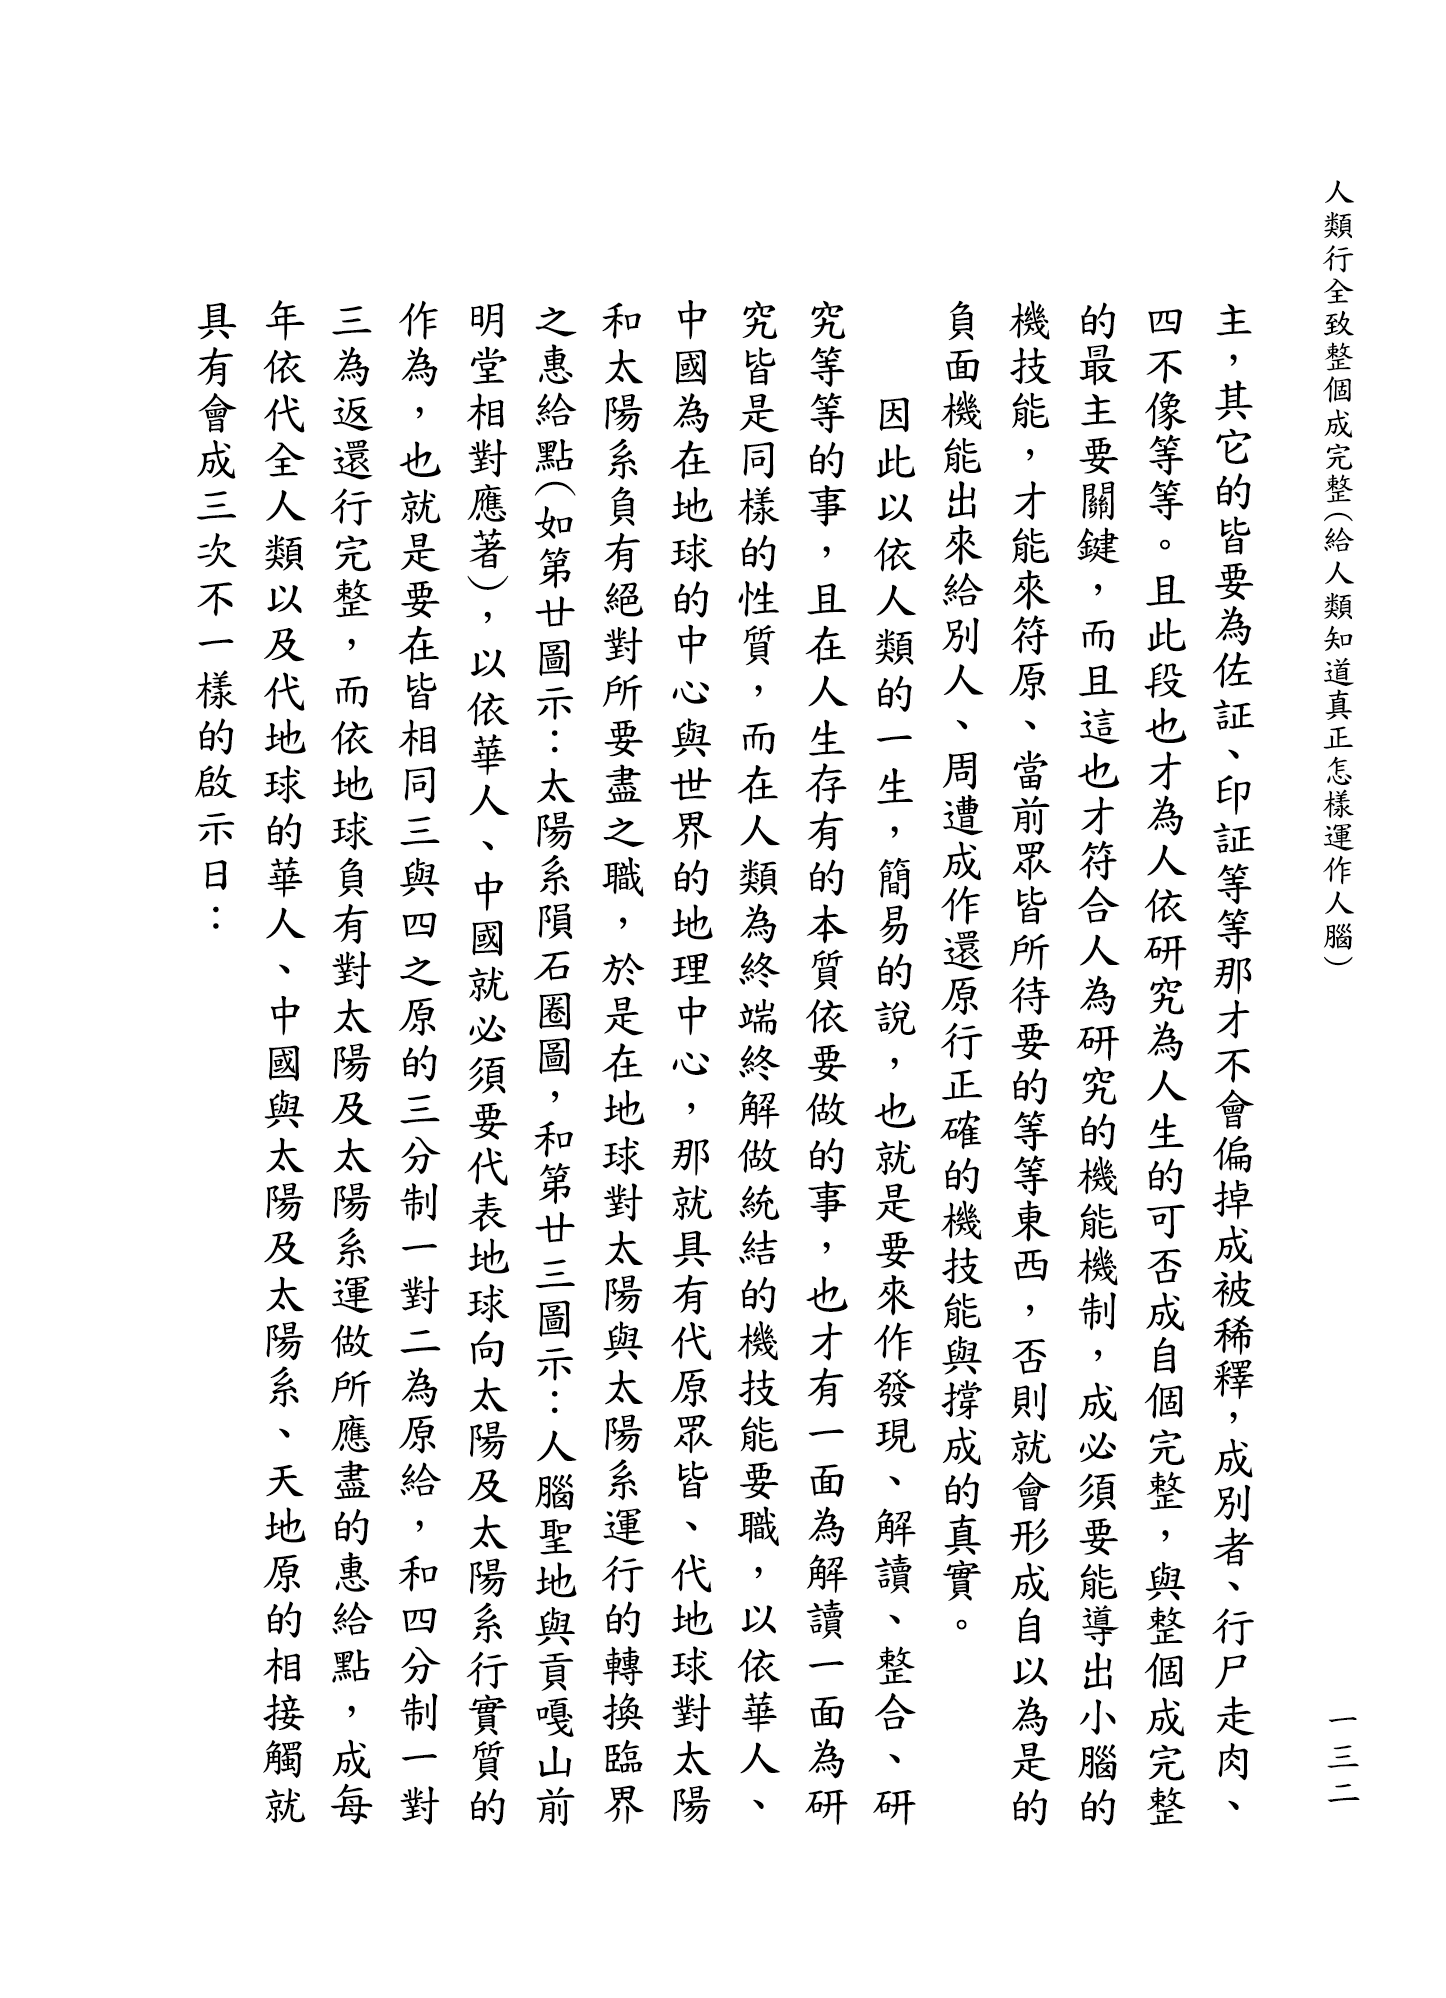 人類行全致整個成完整(給人類知道真正怎樣運作人腦)
一三二
主，其它的皆要為佐証、印証等等那才不會偏掉成被稀釋，成別者、行尸走肉、
四不像等等。且此段也才為人依研究為人生的可否成自個完整，與整個成完整
的最主要關鍵，而且這也才符合人為研究的機能機制，成必須要能導出小腦的
機技能，才能來符原、當前眾皆所待要的等等東西，否則就會形成自以為是的
負面機能出來給別人、周遭成作還原行正確的機技能與撐成的真實。
因此以依人類的一生，簡易的說，也就是要來作發現、解讀、整合、研
究等等的事，且在人生存有的本質依要做的事，也才有一面為解讀一面為研
究皆是同樣的性質，而在人類為終端終解做統結的機技能要職，以依華人、
中國為在地球的中心與世界的地理中心，那就具有代原眾皆、代地球對太陽
和太陽系負有絕對所要盡之職，於是在地球對太陽與太陽系運行的轉換臨界
之惠給點(如第廿圖示：太陽系隕石圈圖，和第廿三圖示：人腦聖地與貢嘎山前
明堂相對應著)，以依華人、中國就必須要代表地球向太陽及太陽系行實質的
作為，也就是要在皆相同三與四之原的三分制一對二為原給，和四分制一對
三為返還行完整，而依地球負有對太陽及太陽系運做所應盡的惠給點，成每
年依代全人類以及代地球的華人、中國與太陽及太陽系、天地原的相接觸就
具有會成三次不一樣的啟示日：